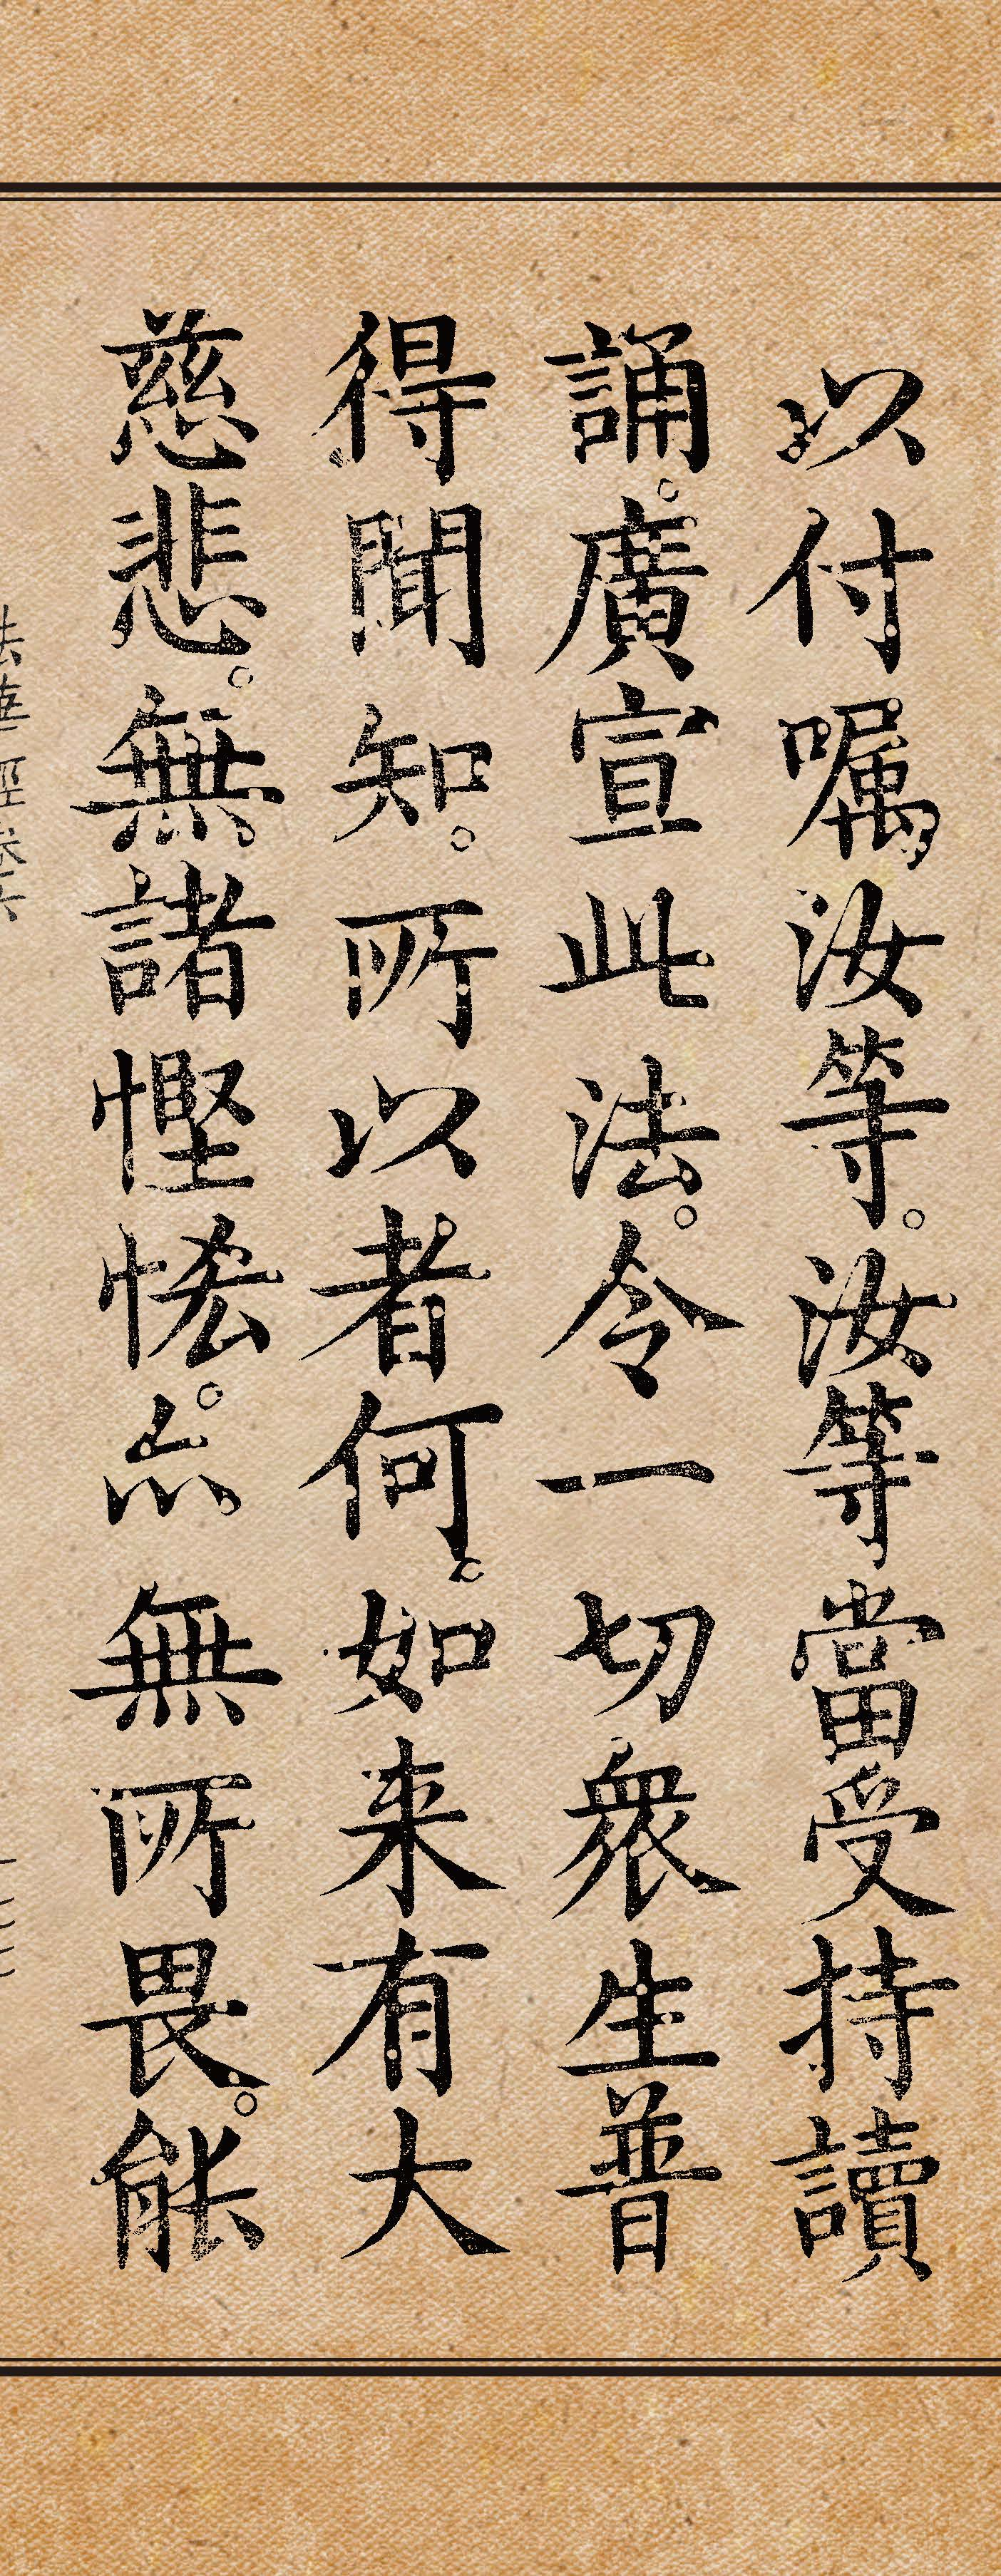 以付嘱汝等。汝等當受持讀
誦。廣宣此法。令一切衆生普
得聞知。所以者何。如来有大
慈悲。無諸慳悋。亦無所畏。能
法華經卷六